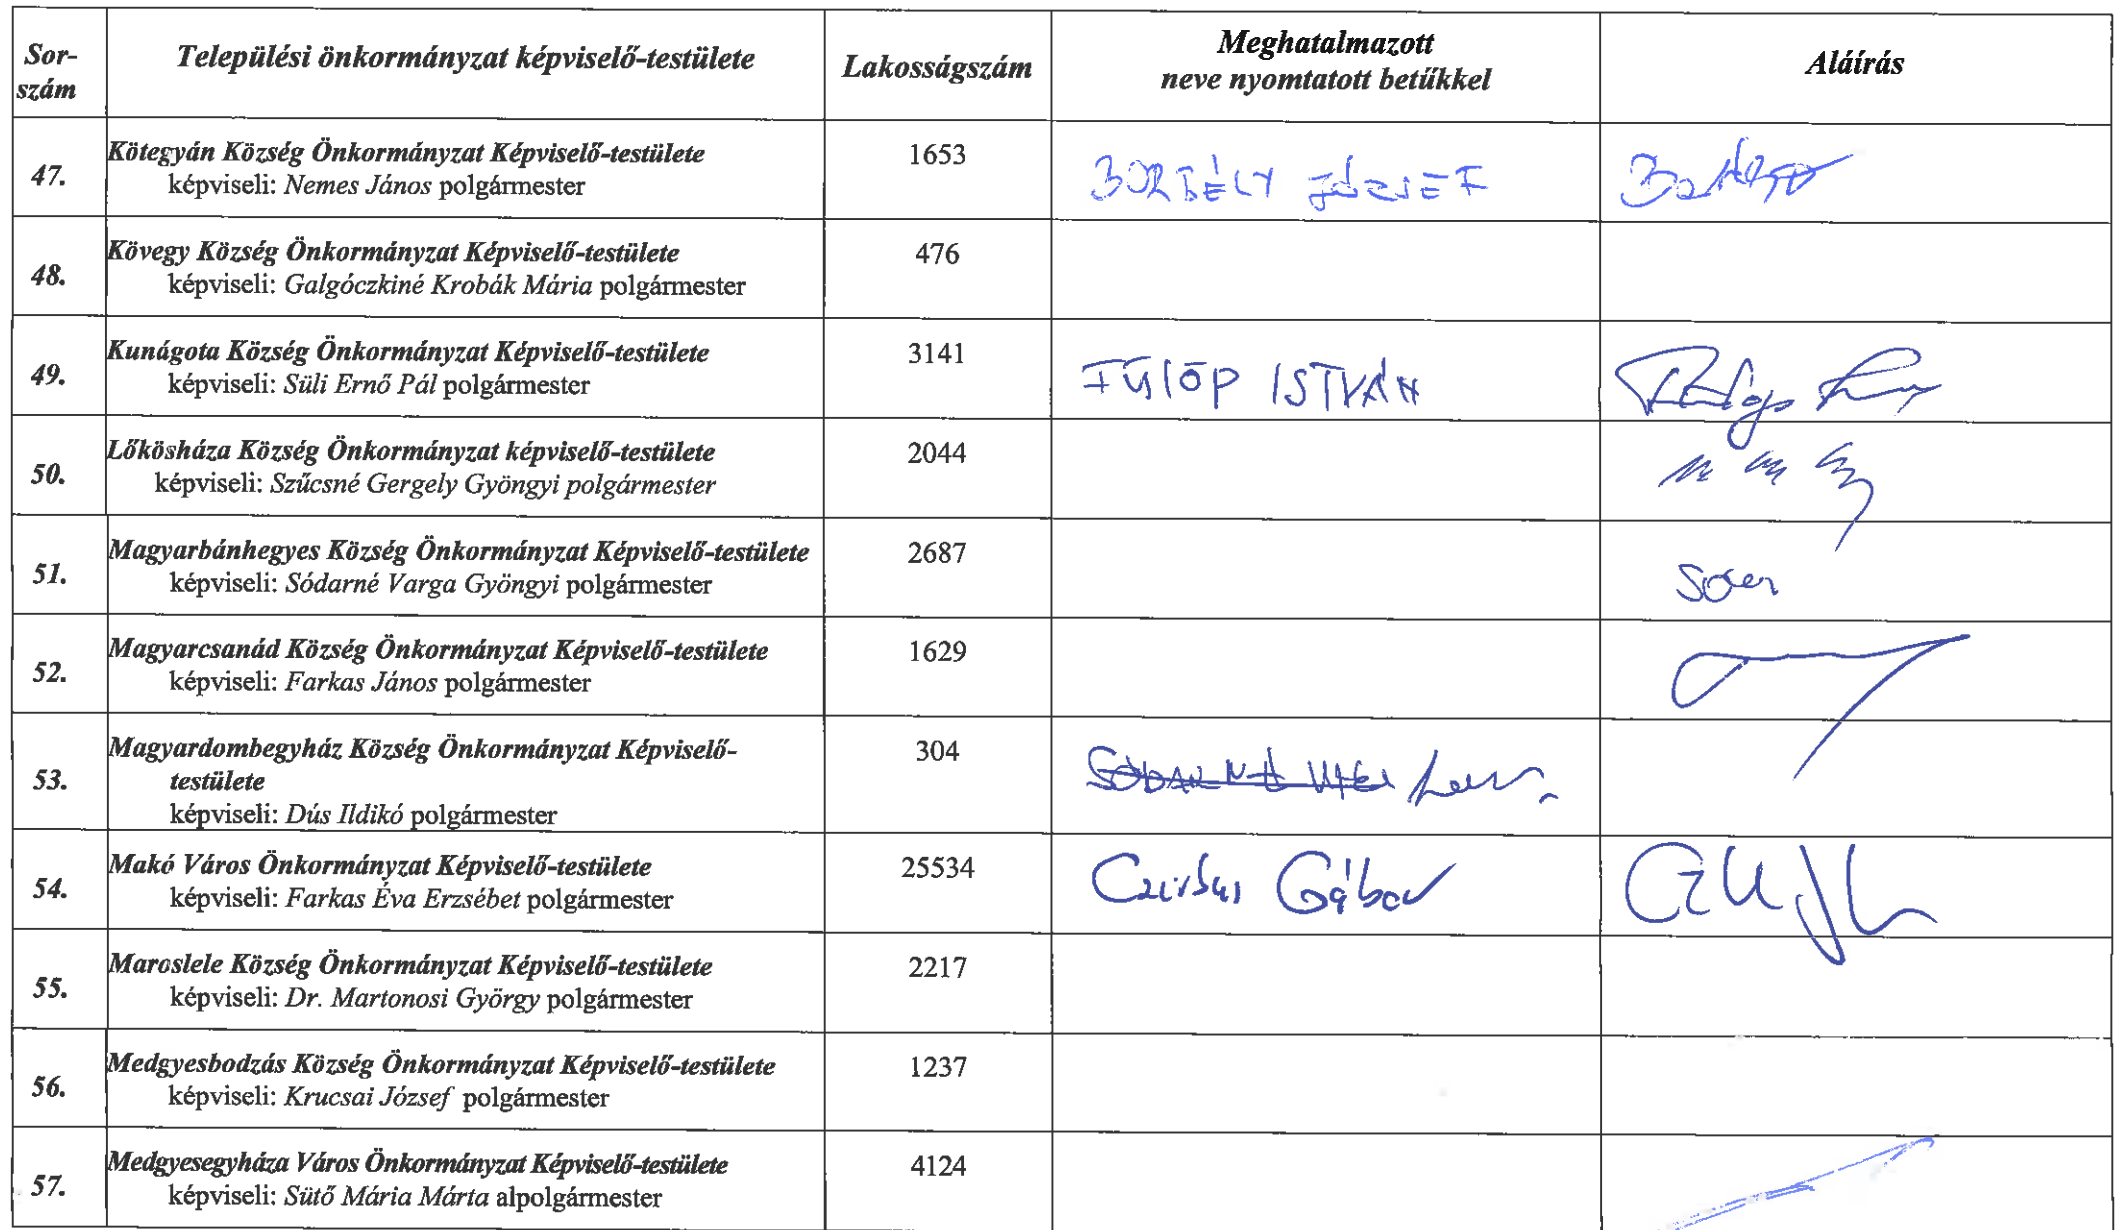 Sor-
szám
Települési önkormányzat képviselő-testülete
Lakosságszám
Meghatalmazott
neve nyomtatott betűkkel
Aláírás
47.
Kötegyán Község Önkormányzat Képviselő-testülete
képviseli: Nemes János polgármester
1653
BORBÉLY JÓZSEF
48.
Kövegy Község Önkormányzat Képviselő-testülete
képviseli: Galgóczkiné Krobák Mária polgármester
476
49.
Kunágota Község Önkormányzat Képviselő-testülete
képviseli: Süli Ernő Pál polgármester
3141
FÜLÖP ISTVÁN
50.
Lőkösháza Község Önkormányzat képviselő-testülete
képviseli: Szűcsné Gergely Gyöngyi polgármester
2044
51.
Magyarbánhegyes Község Önkormányzat Képviselő-testülete
képviseli: Sódarné Varga Gyöngyi polgármester
2687
52.
Magyarcsanád Község Önkormányzat Képviselő-testülete
képviseli: Farkas János polgármester
1629
53.
Magyardombegyház Község Önkormányzat Képviselő-
testülete
képviseli: Dús Ildikó polgármester
304
54.
Makó Város Önkormányzat Képviselő-testülete
képviseli: Farkas Éva Erzsébet polgármester
25534
Gábor
55.
Maroslele Község Önkormányzat Képviselő-testülete
képviseli: Dr. Martonosi György polgármester
2217
56.
Medgyesbodzás Község Önkormányzat Képviselő-testülete
képviseli: Krucsai József polgármester
1237
57.
Medgyesegyháza Város Önkormányzat Képviselő-testülete
képviseli: Sütő Mária Márta alpolgármester
4124